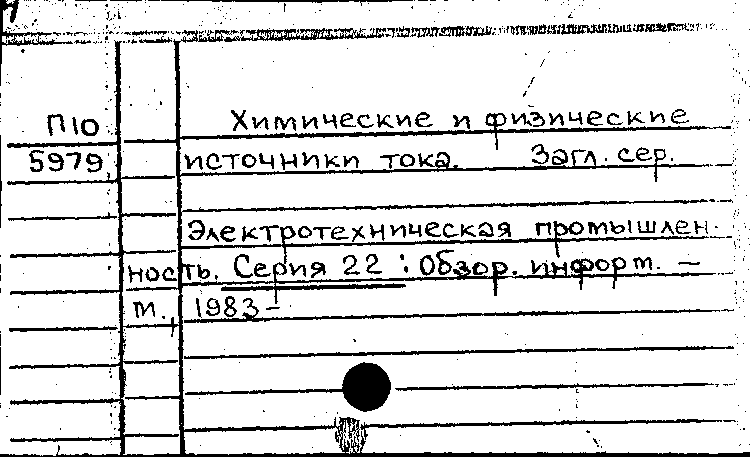 П10
5979
Химические и физические
источники тока. Загл. сер.
Электротехническая промышлен-
ность. Серия 22 : Обзор. информ. —
М., 1983–